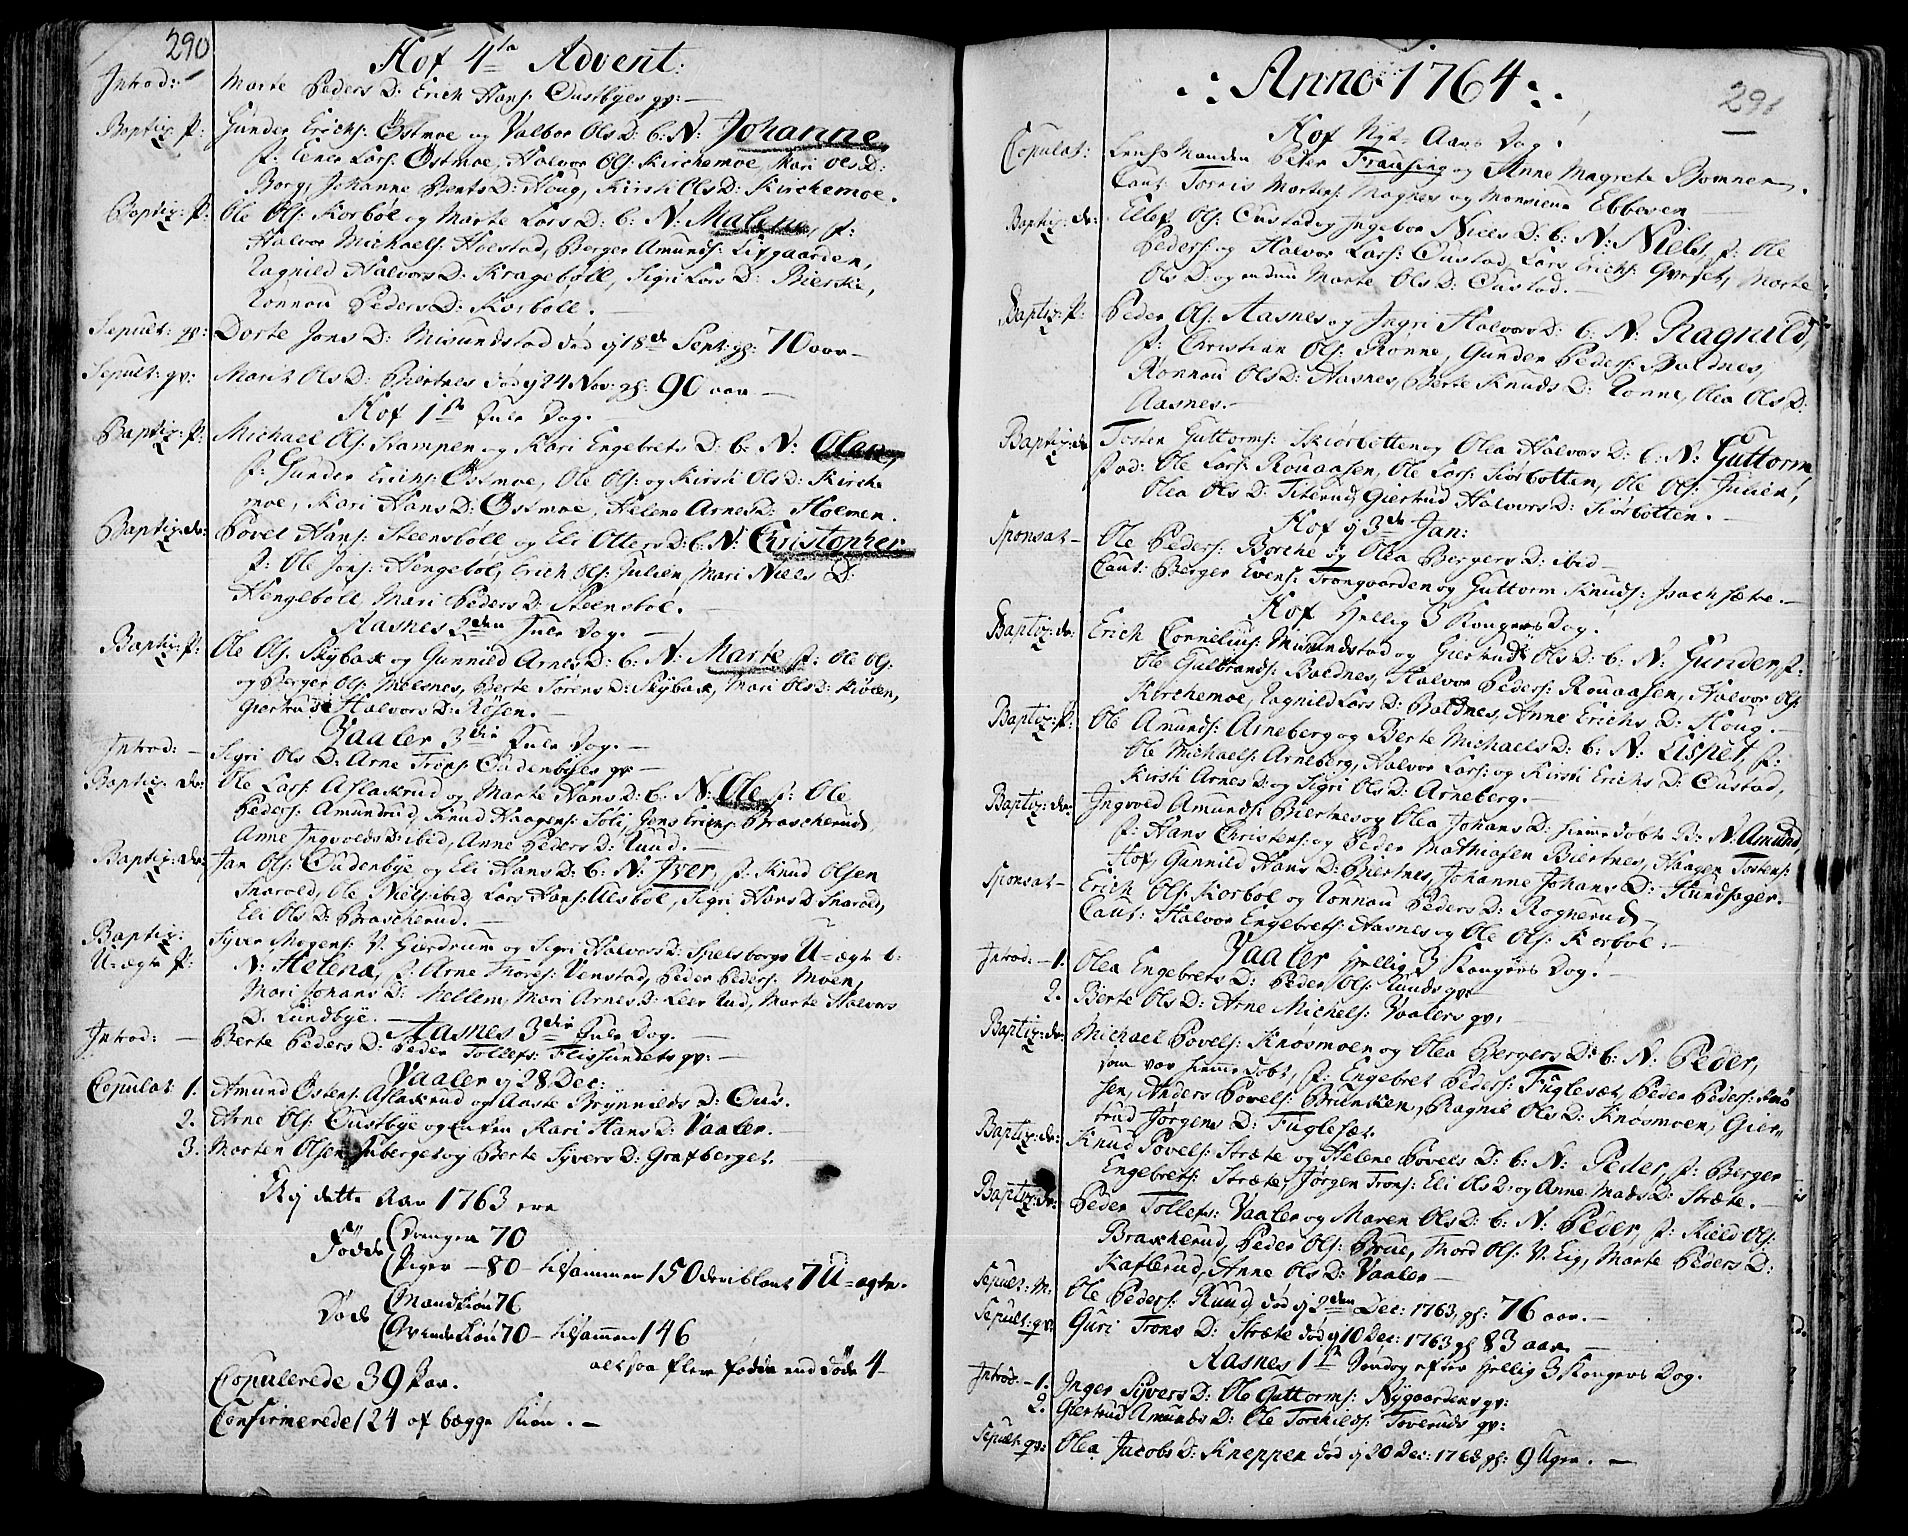 290
Hof 4ta Advent:
Introd: Marte Peders D: Erich Hans: Oustbyes qv: —
Baptiz: P: Gunder Erichs: Östmoe og Valbor Ols D: b: N: Johanne,
f: Ener Lars: Östmoe, Halvor Ols: Kirchemoe, Kari Ols D:
Borg, Johanne Bents D: Houg, Kirsti Ols D: Kirchemoe.
Baptiz: P: Ole Ols: Korböl og Marte Lars D: b: N: Malene, f:
Halvor Michaels: Holstad, Berger Amunds: Lisgaarden,
Ragnild Halvors D: Krageböll, Sigri Lars D: Bierke,
Rönnou Peders D: Korböll. —
Sepult: qv: Dorte Jons D: Misundstad död ij 18de Sept: gl: 70 aar —
Sepult: qv: Marit Ols D: Biertnes död ij 24 Nov: gl: 90 aar —
Hof 1ste Jule Dag. —
Baptiz: P: Michael Ols: Stampen og Kari Engebrets D: b: N: Olea,
f: Gunder Erichs: Östmoe, Ole Ols: og Kirsti Ols D: Kirche
moe, Kari Hans D: Östmoe, Helene Arnes D: Holmen.
Baptiz: dr: Povel Hans: Steensböll og Eli Otters D: b: N: Christopher
f: Ole Jons: Hengeböl, Erich Ols: Julien, Mari Niels D:
Hengeböll, Mari Peders D: Steensböl. —
Aasnes 2den Jule Dag. —
Baptiz: P: Ole Ols: Skÿbak og Gunnild Arnes D: b: N: Marte f: Ole Ols:
og Berger Ols: Moesnes, Berte Sörens D: Skÿbak, Mari Ols D: Kiölen,
Giertrud Halvors D: Rösen. —
Vaaler 3die Jule Dag. —
Introd: — Sigri Ols D: Arne Trons: Oudenbyes qv —
Baptiz: dr: Ole Lars: Aslakrud og Marte Hans D: b: N: Ole f: Ole
Peders: Amundrud, Knud Haagens: Soli, Jens Erichs: Braskerud,
Anne Ingvolds D: ibid, Anne Peders D: Ruud. —
Baptiz: dr: Jan Ols: Oudenbye og Eli Hans D: b: N: Iver, f: Knud Olsen
Snarold, Ole Niels: ibid, Lars Hans: Ulsböl, Sigri Hans D: Snarold,
Eli Ols D: Braskerud. —
Baptiz: Syver Mogens: V. Gierdrum og Sigri Halvors D: Spelsberge U=ægte b:
U=ægte P: N: Helena, f: Arne Thores: Venstad, Peder Peders: Moen,
Mari Johans D: Mellem, Mari Arnes D: Leerrud, Marte Halvors
D: Lundbÿe. —
Aasnes 3die Jule Dag. —
Introd: — Berte Peders D: Peder Tollefs: Flissundets qv: —
Vaaler ij 28 Dec:
Copulat: 1. Amund Östens: Aslakrud og Aaste Brynnilds D: Ous.
2. Arne Ols: Oustbÿe og Enken Kari Hans D: Vaaler. —
3: Morten Olsen Inberget og Berte Syvers D: Grafberget.
Udj dette Aar 1763 ere
Födde (Drenger 70
(Piger — 80 — tilsammen 150 deriblant 7 U=ægte.
Döde (Mandkiön 76
(Qvindekiön 70 — tilsammen 146
altsaa flere födde end döde 4
Copulerede 39 Par.
Confirmerede 124 af begge Kiön. —
Anno 1764
291
Hof Nÿt= Aars Dag.
Copulat: Lens Manden Peder Frausing og Anne Magrete Bomner.
Caut: Torris Mortens: Magnes og Monsieur Ebbesen —
Baptiz: dr: Ellef Ols: Oustad og Ingebor Niels D: b: N: Niels, f: Ole
Peders: og Halvor Lars: Oustad, Lars Erichs: Qvesset, Marte
Ols D: og endnu Marte Ols D: Oustad. —
Baptiz: P: Peder Ols: Aasnes og Ingri Halvors D: b: N: Ragnild,
f: Christian Ols: Rönne, Gunder Peders: Baldnes,
Rönnou Ols D: Aasnes, Berte Knuds D: Rönne, Olea Ols D:
Aasnes. —
Baptiz: dr Tosten Guttorms: Skiörbotten og Olea Halvors D: b: N: Guttorm,
fad: Ole Lars: Rouaasen, Ole Lars: Skiörbotten, Ole Ols: Julien,
Olea Ols D: Titerud, Giertrud Halvors D: Skiörbotten. —
Hof ij 3de Jan:
Sponsat — Ole Peders: Borche og Olea Bergers D: ibid —
Caut: Berger Evens: Trongaarden og Guttorm Knuds: Isachsætre. —
Hof Hellig 3 Konges Dag.
Baptiz: dr: Erich Cornelius: Misundstad og Giertrud Ols D: b: N: Gunder f:
Ole Gulbrands: Baldnes, Halvor Peders: Rouaasen, Halvor Ols:
Kirchemoe, Ragnild Lars D: Baldnes, Anne Erichs D: Houg. —
Baptiz: P: Ole Amunds: Arneberg og Berte Michaels D: b: N: Lispet, f:
Ole Michaels: Arneberg, Halvor Lars: og Kirsti Erichs D: Oustad,
Kirsti Arnes D: og Sigri Ols D: Arneberg. —
Baptiz: dr: Ingvold Amunds: Biertnes og Olea Johans D: hiemmedöbte B: N: Amund,
f: Hans Christens: og Peder Mathiasen Biertnes, Haagen Tostens:
Hof, Gunnild Hans D: Biertnes, Johanne Johans D: Hundsager.
Sponsat — Erich Ols: Korböl og Rönnou Peders D: Rognerud —
Caut: Halvor Engebrets: Aasnes og Ole Ols: Korböl: —
Vaaler Hellig 3 Kongers Dag.
Introd: — 1. Olea Engebrets D: Peder Ols: Ruuds qv: —
2. Berte Ols D: Arne Michels: Vaalers qv:
Baptiz: dr: Michael Povels: Knösmoen og Olea Bergers D: b: N: Peder,
som var hiemmedöbt, f: Engebret Peders: Fuglesæt, Peder Peders: Knö
sen, Anders Povels: Bruncken, Ragnil Ols D: Knösmoen, Gier=
trud Jörgens D: Fuglesæt.
Baptiz: dr: Knud Povels: Stræte og Helene Povels D: b: N: Peder, f: Berger
Engebrets: Stræte, Jörgen Trons: Eli Ols D: og Anne Mads D: Stræte. —
Baptiz: dr: Peder Tollefs: Vaaler og Maren Ols D: b: N: Peder, f: Kield Ols:
Braskerud, Peder Ols: Brue, Tord Ols: V. Eig, Marte Peders D:
Kaflerud, Anne Ols D: Vaaler —
Sepult: M: Ole Peders: Ruud, död ij 2den Dec: 1763, gl: 76 aar. —
Sepult: qv: Guri Trons D: Stræte död ij 10 Dec: 1763 gl 83 aar. —
Aasnes 1ste Söndag efter Hellig 3 Kongers Dag.
Introd. — 1: Inger Syvers D: Ole Guttorms: Nÿgaardens qv:
2. Giertrud Amunds D: Ole Torchilds: Toveruds qv:
Sepult: qv: Olea Jacobs D: Kneppen död ij 20 Dec: 1763 gl: 9 Uger. —